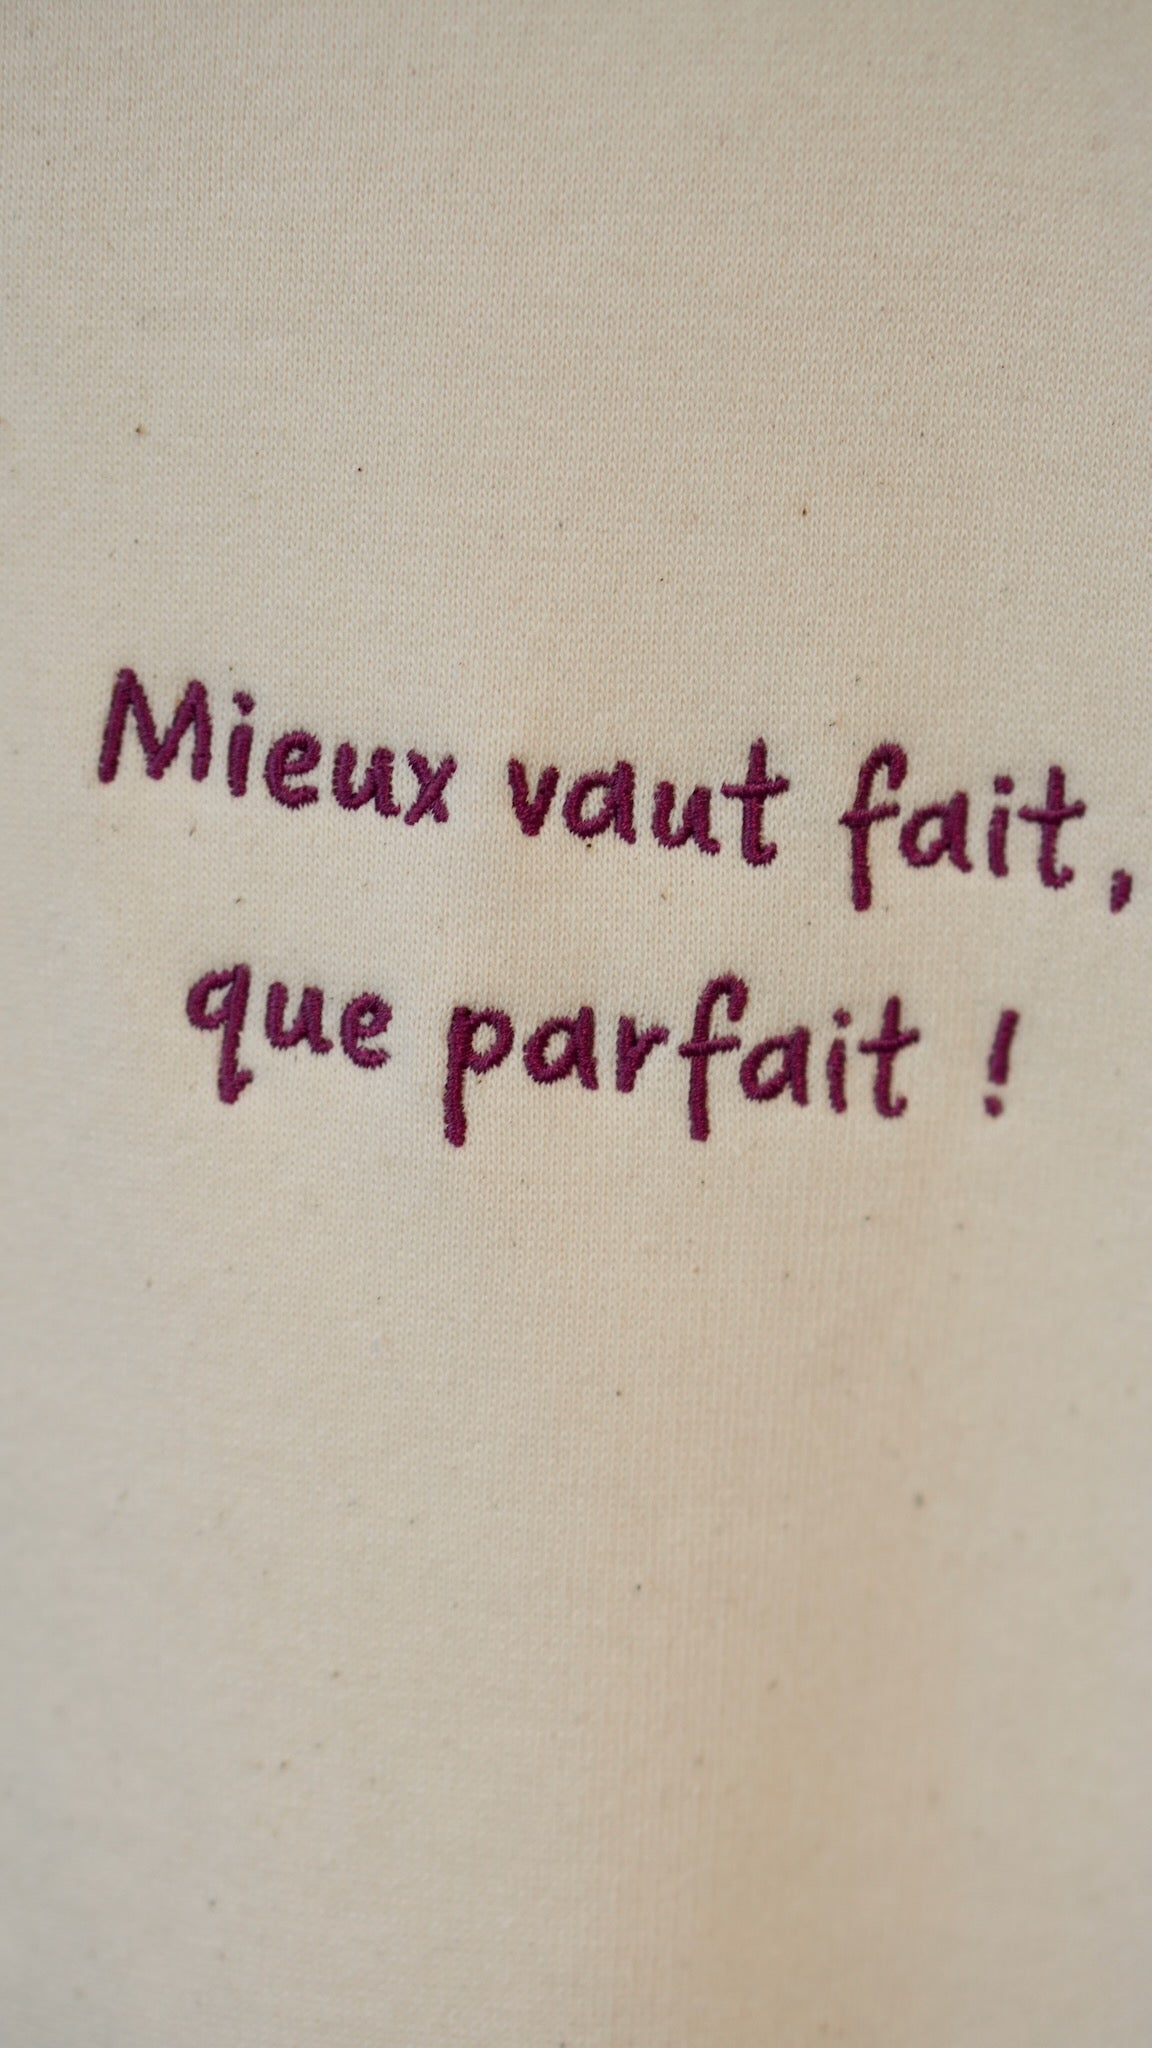 Mieux vaut fait,
que parfait !